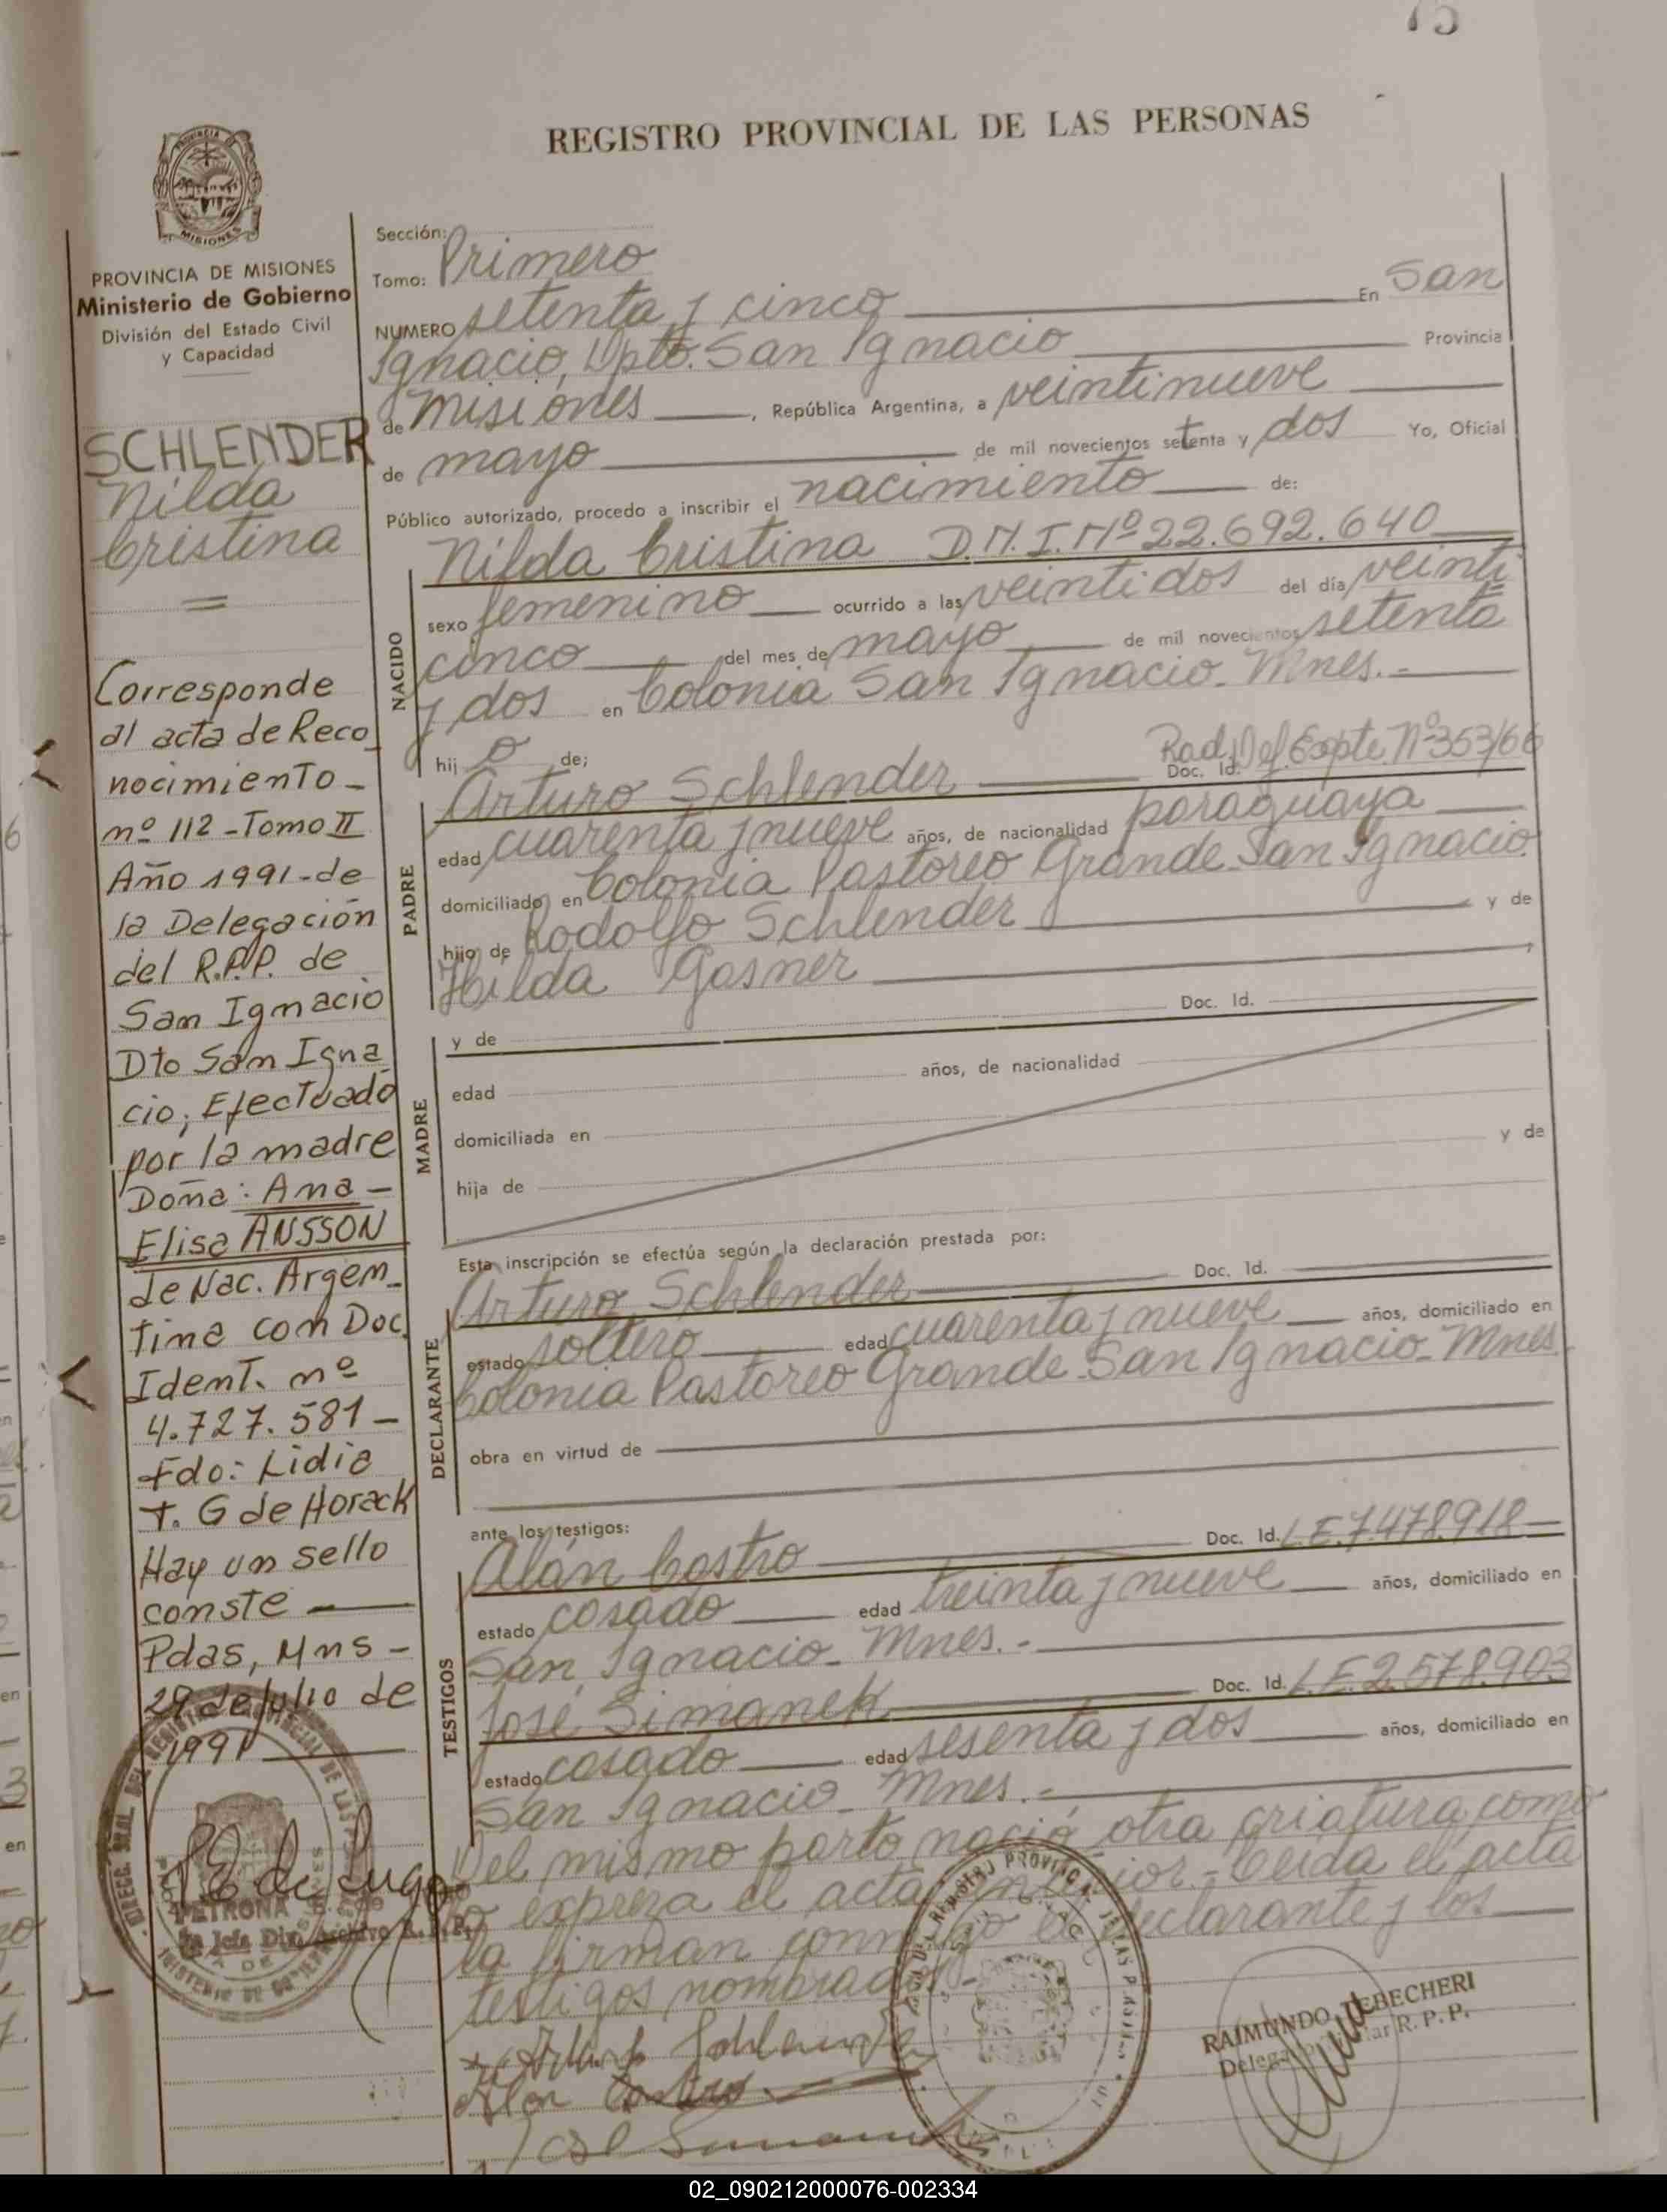 75
REGISTRO PROVINCIAL DE LAS PERSONAS
PROVINCIA DE MISIONES
Ministerio de Gobierno
División del Estado Civil
y Capacidad
SCHLENDER
Nilda
Cristina
=
Corresponde
al acta de Reco
nocimiento -
nº 112 - Tomo II
Año 1991 - de
la Delegación
del R.P.P. de
San Ignacio
Dto San Igna
cio; Efectuado
por la madre
Doña: Ana -
Elisa ANSSON
de Nac. Argen-
tina con Doc.
Ident. nº
4.727.581 -
Fdo: Lidia
T. G de Horack
Hay un sello
conste
Pdas, Mns -
29 de Julio de
1991
Sección:
Tomo: Primero
NUMERO setenta y cinco En San
Ignacio, Dpto. San Ignacio Provincia
de Misiones, República Argentina, a veintinueve
de mayo de mil novecientos setenta y dos Yo, Oficial
Público autorizado, procedo a inscribir el nacimiento de:
NACIDO
Nilda Cristina D.N.I. Nº 22.692.640
sexo femenino ocurrido a las veintidos del día veinti
cinco del mes de mayo de mil novecientos setenta
y dos en Colonia San Ignacio - Mnes. -
hij o de;
PADRE
Arturo Schlender Doc. Id. Rad. Def. Expte. Nº 353/66
edad cuarenta y nueve años, de nacionalidad paraguaya
domiciliado en Colonia Pastoreo Grande - San Ignacio
hijo de Rodolfo Schlender y de
Hilda Gasner
MADRE
y de Doc. Id.
edad años, de nacionalidad
domiciliada en
hija de y de
Esta inscripción se efectúa según la declaración prestada por:
DECLARANTE
Arturo Schlender Doc. Id.
estado soltero edad cuarenta y nueve años, domiciliado en
Colonia Pastoreo Grande - San Ignacio - Mnes
obra en virtud de
ante los testigos:
TESTIGOS
Alán Castro Doc. Id. L.E. 7.478.918 -
estado casado edad treinta y nueve años, domiciliado en
San Ignacio - Mnes. -
José Simanek Doc. Id. L.E. 2.578.903
estado casado edad sesenta y dos años, domiciliado en
San Ignacio - Mnes. -
Del mismo parto nació otra criatura como
lo expreza el acta anterior. - Leída el acta
la firman conmigo el declarante y los
testigos nombrados. -
Alan Castro
RAIMUNDO
Delegado Titular R. P. P.
PETRONA
02_090212000076-002334